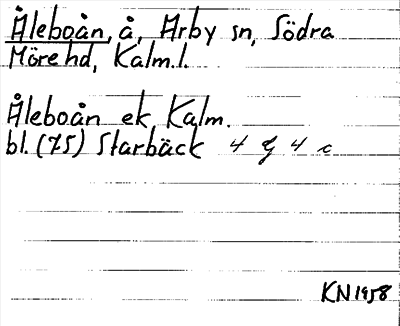 Åleboån, å, Arby sn, Södra
Möre hd, Kalm.l.
Åleboån ek Kalm.
bl. (75) Starbäck 4 G 4 c
KN 1958